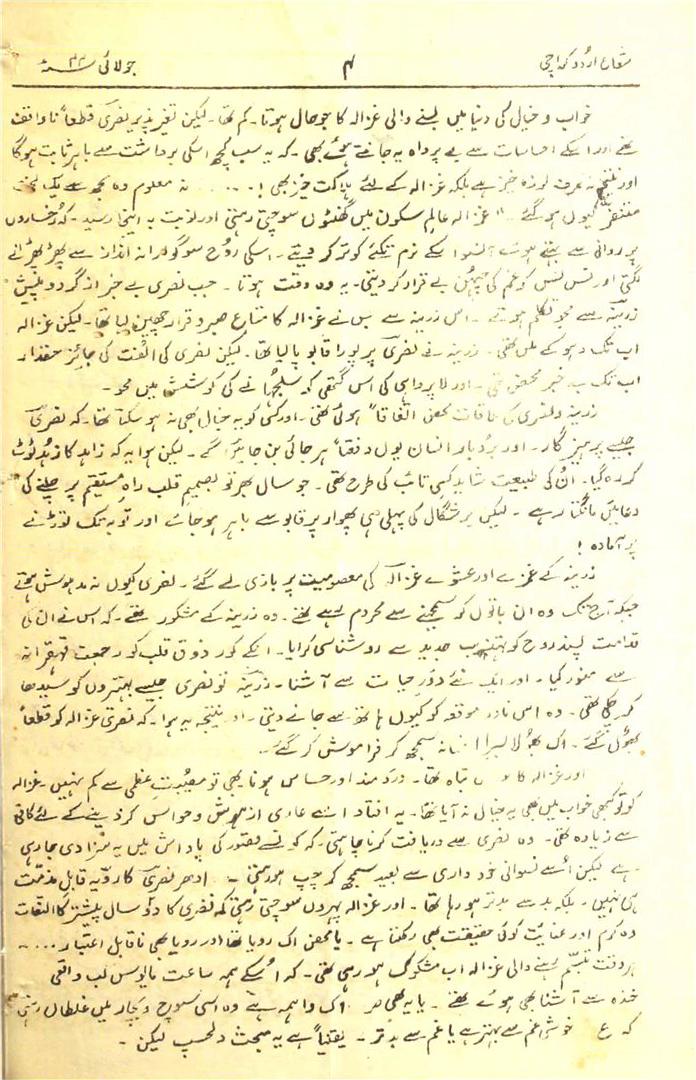 شعاع اردو کراچی ۴ جولائی ۴۴ سنہ
خواب و خیال کی دنیا میں بسنے والی غزالہ کا جو حال ہوتا۔ کم تھا۔ لیکن تغیر پذیر نصریؔ قطعاً ناواقف
تھے اور اسکے احساسات سے بے پرواہ یہ جانتے ہوئے بھی۔ کہ یہ سب کچھ اسکی برداشت سے باہر ثابت ہوگا
اور نتیجہ نہ صرف لرزہ خیز ہے بلکہ غزالہ کے لئے ہلاکت خیز بھی! ..... نہ معلوم وہ مجھ سے یک لخت
متنفر کیوں ہو گئے۔" غزالہ عالم سکون میں گھنٹوں سوچتی رہتی اور نوبت بہ اینجا رسید۔ کہ رُخساروں
پر روانی سے بہتے ہوئے آنسو اسکے نرم تکئے کو تر کر دیتے۔ اسکی روح سوگوارانہ انداز سے پھڑپھڑانے
لگتی اور نس نس کو غم کی چبھن بے قرار کر دیتی۔ یہ وہ وقت ہوتا۔ جب نصری بے خبر از گرد و پیش
زرینہ سے محو تکلم ہوتے۔ اس زرینہ سے جس نے غزالہ کا متاع صبر و قرار چھین لیا تھا۔ لیکن غزالہ
اب تک دھوکے میں تھی۔ زرینہ نے نصریؔ پر پورا قابو پا لیا تھا۔ لیکن نصری کی الفت کی جائز حقدار
اب تک بے خبر محض تھی۔ اور لاپرواہی کی اس گتھی کو سلجھانے کی کوشش میں محو۔
زرینہ و نصری کی ملاقات محض اتفاقاً ہوئی تھی۔ اور کسی کو یہ خیال بھی نہ ہو سکتا تھا۔ کہ نصریؔ
جیسے پرہیزگار۔ اور بردبار انسان یوں دفعتاً ہرجائی بن جائیں گے۔ لیکن ہوا یہ کہ زاہد کا زہد ٹوٹ
کر رہ گیا۔ اُن کی طبیعت شاید کسی تائب کی طرح تھی۔ جو سال بھر تو بصمیم قلب راہِ مستقیم پر چلنے کی
دعائیں مانگتا رہے۔ لیکن برشگال کی پہلی ہی پھوار پر قابو سے باہر ہو جائے اور توبہ تک توڑنے
پر آمادہ!
زرینہ کے غمزے اور عشوے غزالہ کی معصومیت پر بازی لے گئے۔ نصری کیوں نہ مدہوش ہوتے
جبکہ آج تک وہ ان باتوں کو سمجھنے سے محروم رہے تھے۔ وہ زرینہ کے مشکور تھے۔ کہ اس نے ان کی
قدامت پسند روح کو تہذیب جدید سے روشناسی کرایا۔ انکے کور ذوق قلب کو رجعت قہقرانہ
سے منور کیا۔ اور ایک نئے دورِ حیات سے آشنا۔ زرینہ تو نصری جیسے بہتیروں کو سیدھا
کر چکی تھی۔ وہ اس نادر موقعہ کو کیوں ہاتھ سے جانے دیتی۔ اور نتیجہ یہ ہوا۔ کہ نصری غزالہ کو قطعاً
بھول گئے۔ اک بھولا بسرا افسانہ سمجھ کر فراموش کر گئے۔
اور غزالہ کا تباہ تھا۔ دردمند اور حساس ہونا بھی تو مصیبتِ عظمی سے کم نہیں۔ غزالہ
کو تو کبھی خواب میں بھی یہ خیال نہ آیا تھا۔ یہ افتاد اسے عاری از ہوش و حواس کر دینے کے لئے کافی
سے زیادہ تھی۔ وہ نصری سے دریافت کرنا چاہتی۔ کہ کونسے قصور کی پاداش میں یہ سزا دی جا رہی
ہے لیکن اُسے نسوانی خودداری سے بعید سمجھ کر چپ ہو رہتی۔ ادھر نصریؔ کا رویہ قابلِ مذمت
ہی نہیں۔ بلکہ بد سے بدتر ہو رہا تھا۔ اور غزالہ پہروں سوچتی رہتی کہ نصری کا دو سال پیشتر کا التفات
وہ کرم اور عنایت کوئی حقیقت بھی رکھتا ہے۔ یا محض اک رویا تھا اور رویا بھی ناقابل اعتبار .....
ہر وقت تبسّم رہنے والی غزالہ اب مشکوک ہو رہی تھی۔ کہ اُسکے ہمہ ساعت مایوس لب واقعی
خندہ سے آشنا بھی ہوئے تھے۔ یا یہ بھی اک واہمہ ہے وہ اسی سوچ و بچار میں غلطاں رہتی
کہ ع خوشی غم سے بہتر ہے یا غم سے بدتر۔ یقیناً ہے یہ مبحث دلچسپ لیکن۔